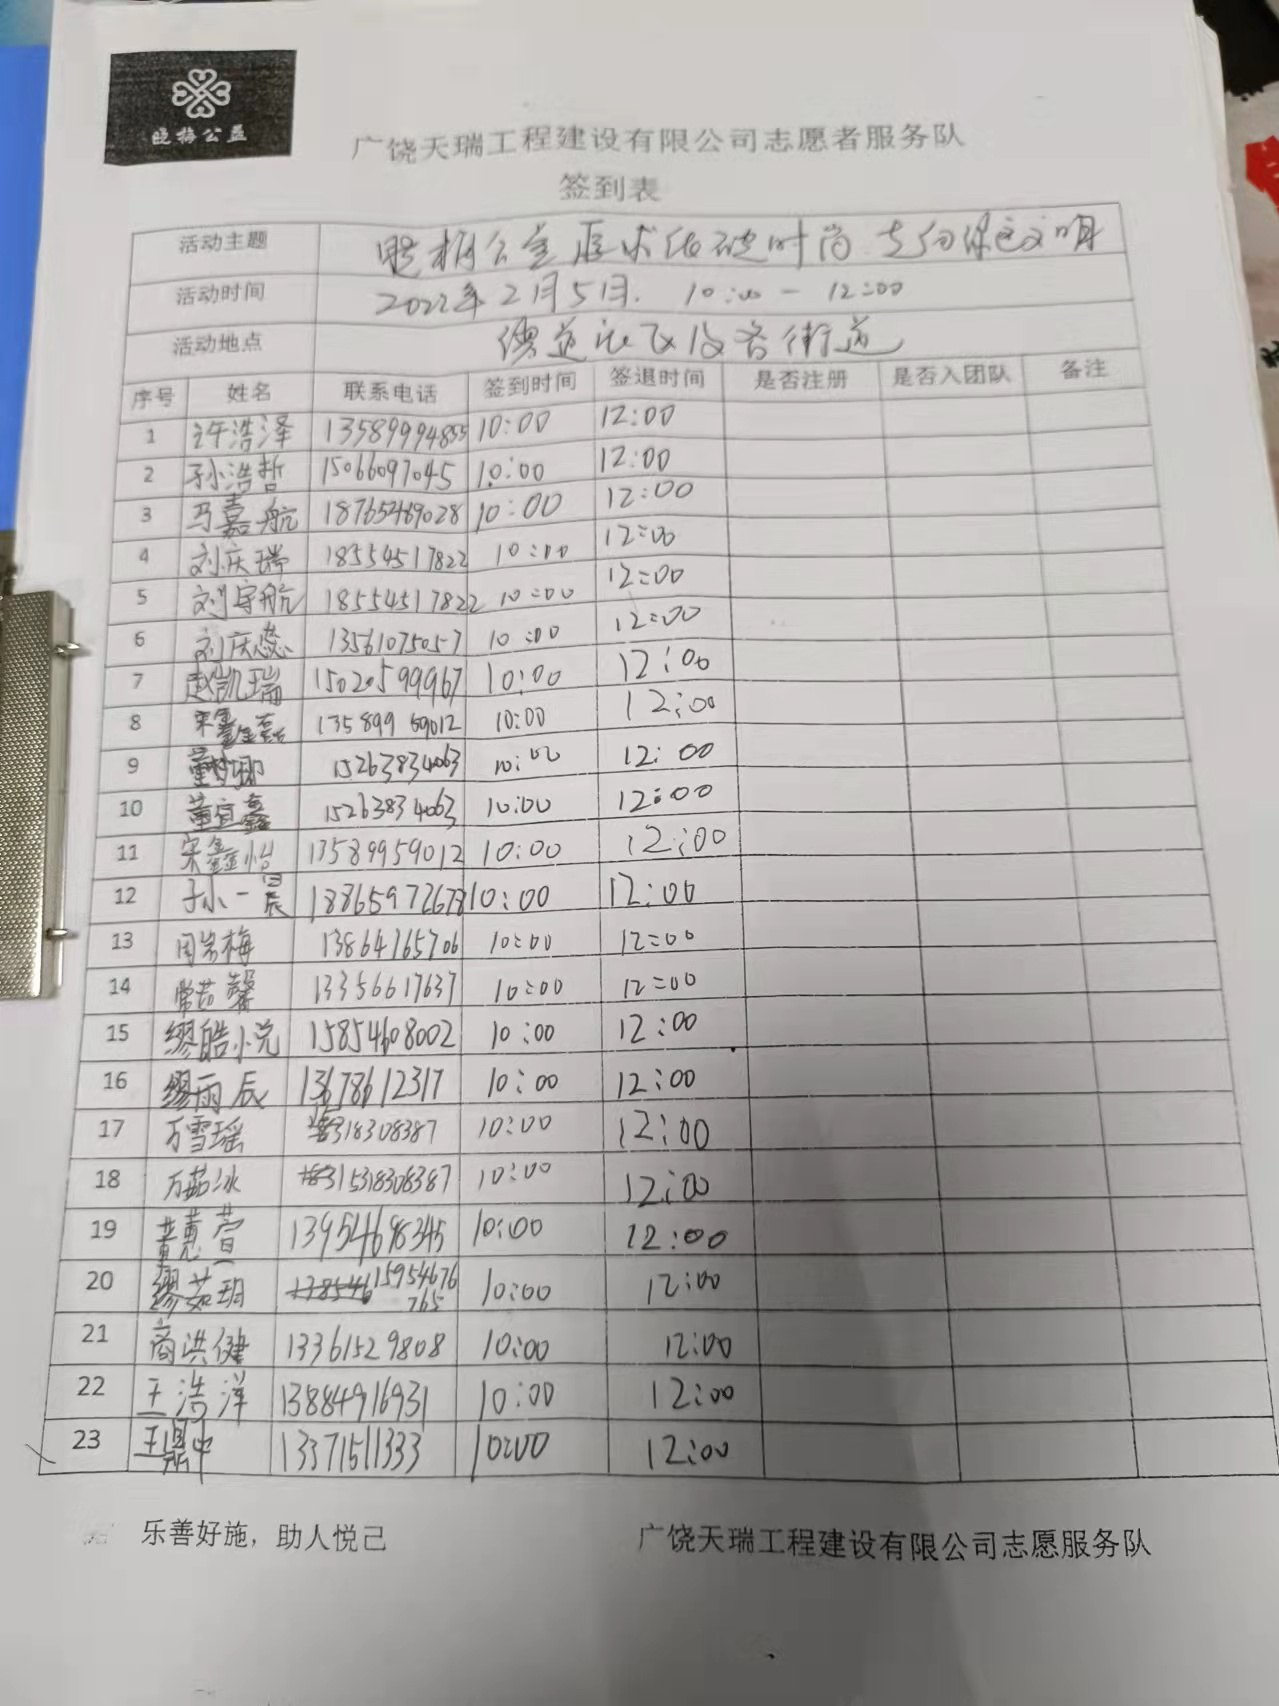 晓梅公益
广饶天瑞工程建设有限公司志愿者服务队
签到表
活动主题 时尚 文明
活动时间 2022年2月5日. 10:00 — 12:00
活动地点 及各街道
序号 姓名 联系电话 签到时间 签退时间 是否注册 是否入团队 备注
1 许浩泽 13589994855 10:00 12:00
2 孙浩哲 15066097045 10:00 12:00
3 马嘉航 18765469028 10:00 12:00
4 刘庆瑞 18554517822 10:00 12:00
5 刘宇航 18554517822 10:00 12:00
6 刘庆蕊 13561075057 10:00 12:00
7 赵凯瑞 15020599967 10:00 12:00
8 13589959012 10:00 12:00
9 15263834063 10:00 12:00
10 董宜鑫 15263834063 10:00 12:00
11 宋鑫怡 13589959012 10:00 12:00
12 孙一晨 18865972678 10:00 12:00
13 13864765706 10:00 12:00
14 常茹馨 13356617637 10:00 12:00
15 缪皓悦 15854608002 10:00 12:00
16 缪雨辰 13678612317 10:00 12:00
17 万雪瑶 10:00 12:00
18 万茹冰 15318308387 10:00 12:00
19 黄惠萱 13954698345 10:00 12:00
20 缪茹玥 15954676765 10:00 12:00
21 商洪健 13361529808 10:00 12:00
22 王浩洋 13884916931 10:00 12:00
23 王鼎中 13371511333 10:00 12:00
乐善好施，助人悦己 广饶天瑞工程建设有限公司志愿服务队